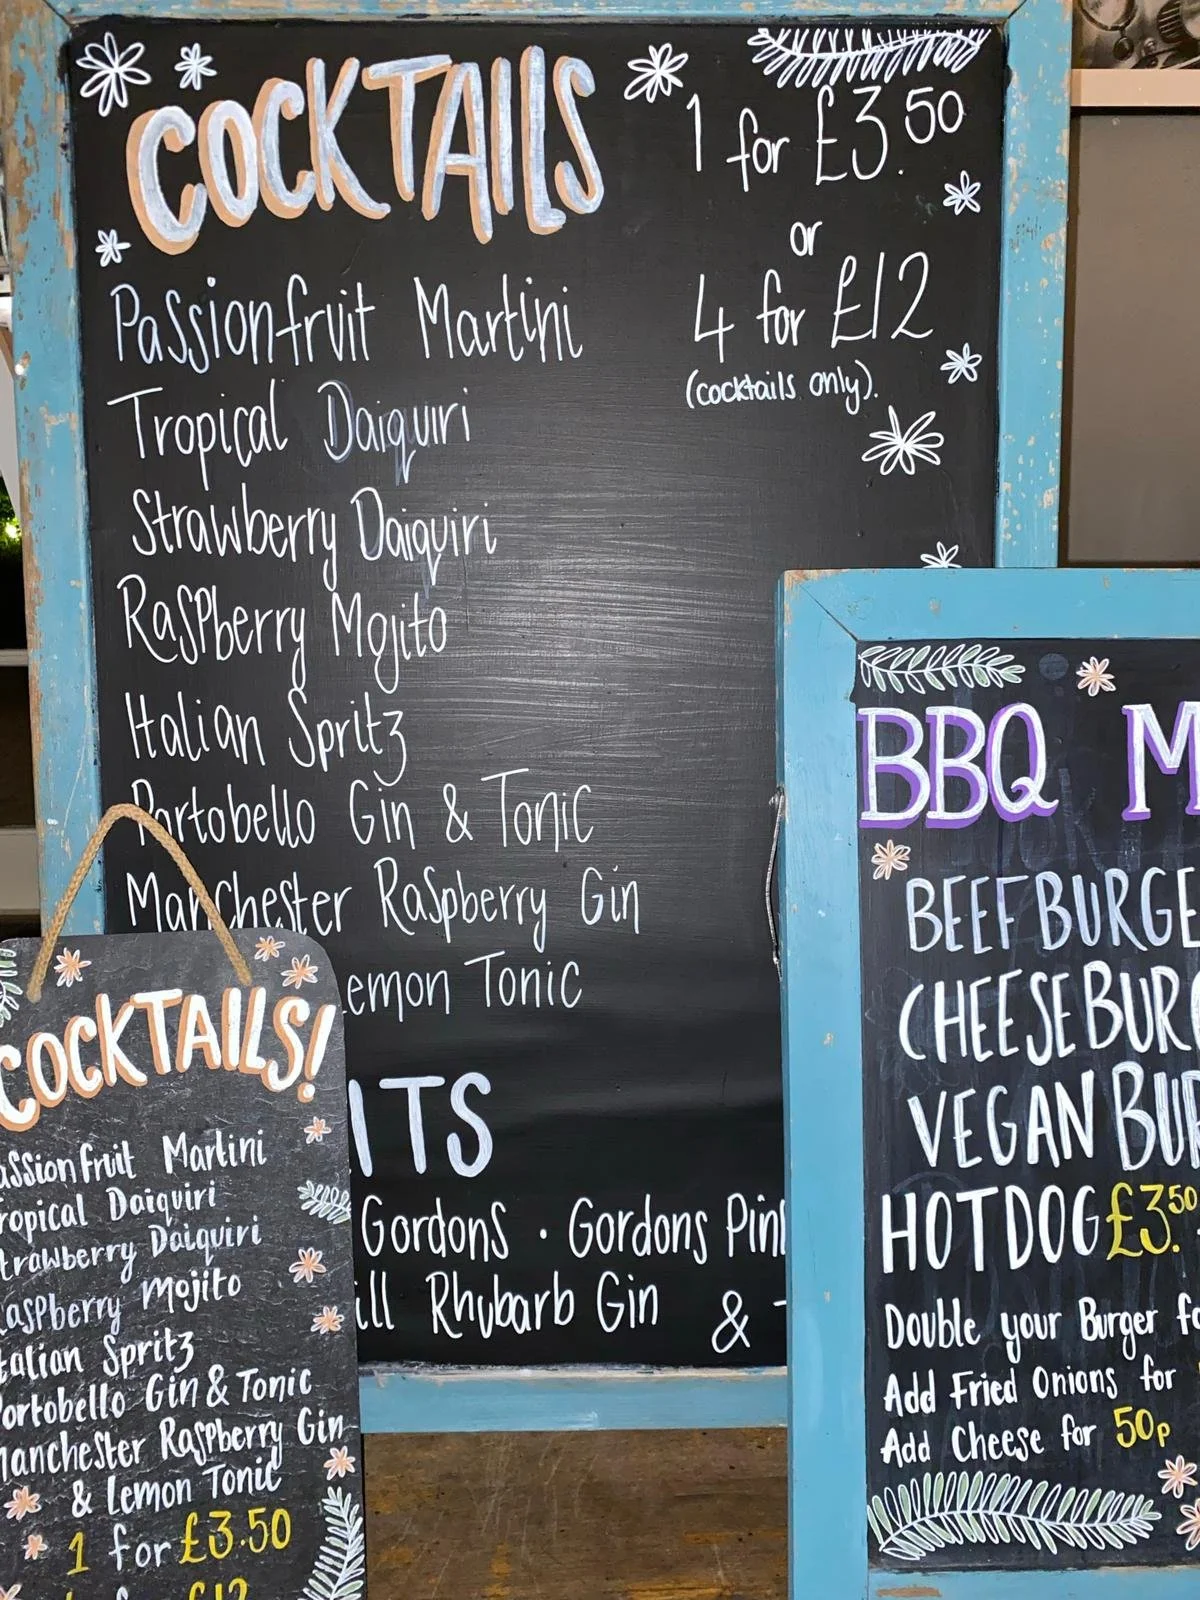 COCKTAILS
1 for £3.50
or
4 for £12
(cocktails only).
Passionfruit Martini
Tropical Daiquiri
Strawberry Daiquiri
Raspberry Mojito
Italian Spritz
Portobello Gin & Tonic
Manchester Raspberry Gin
emon Tonic
ITS
Gordons · Gordons Pin
ill Rhubarb Gin &
COCKTAILS!
assionfruit Martini
ropical Daiquiri
trawberry Daiquiri
aspberry Mojito
talian Spritz
ortobello Gin & Tonic
anchester Raspberry Gin
& Lemon Tonic
1 for £3.50
£12
BBQ M
BEEF BURGE
CHEESE BUR
VEGAN BUR
HOTDOG £3.50
Double your Burger fo
Add Fried Onions for
Add Cheese for 50p